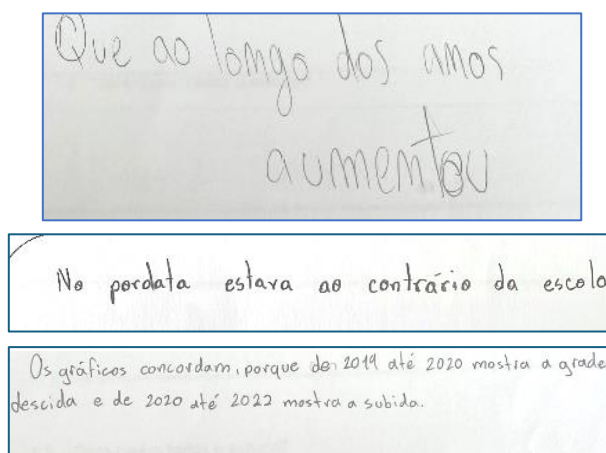 Que ao longo dos amos
aumentou
No pordata estava ao contrário da escola
Os gráficos concordam, porque de 2019 até 2020 mostra a grade
descida e de 2020 até 2022 mostra a subida.